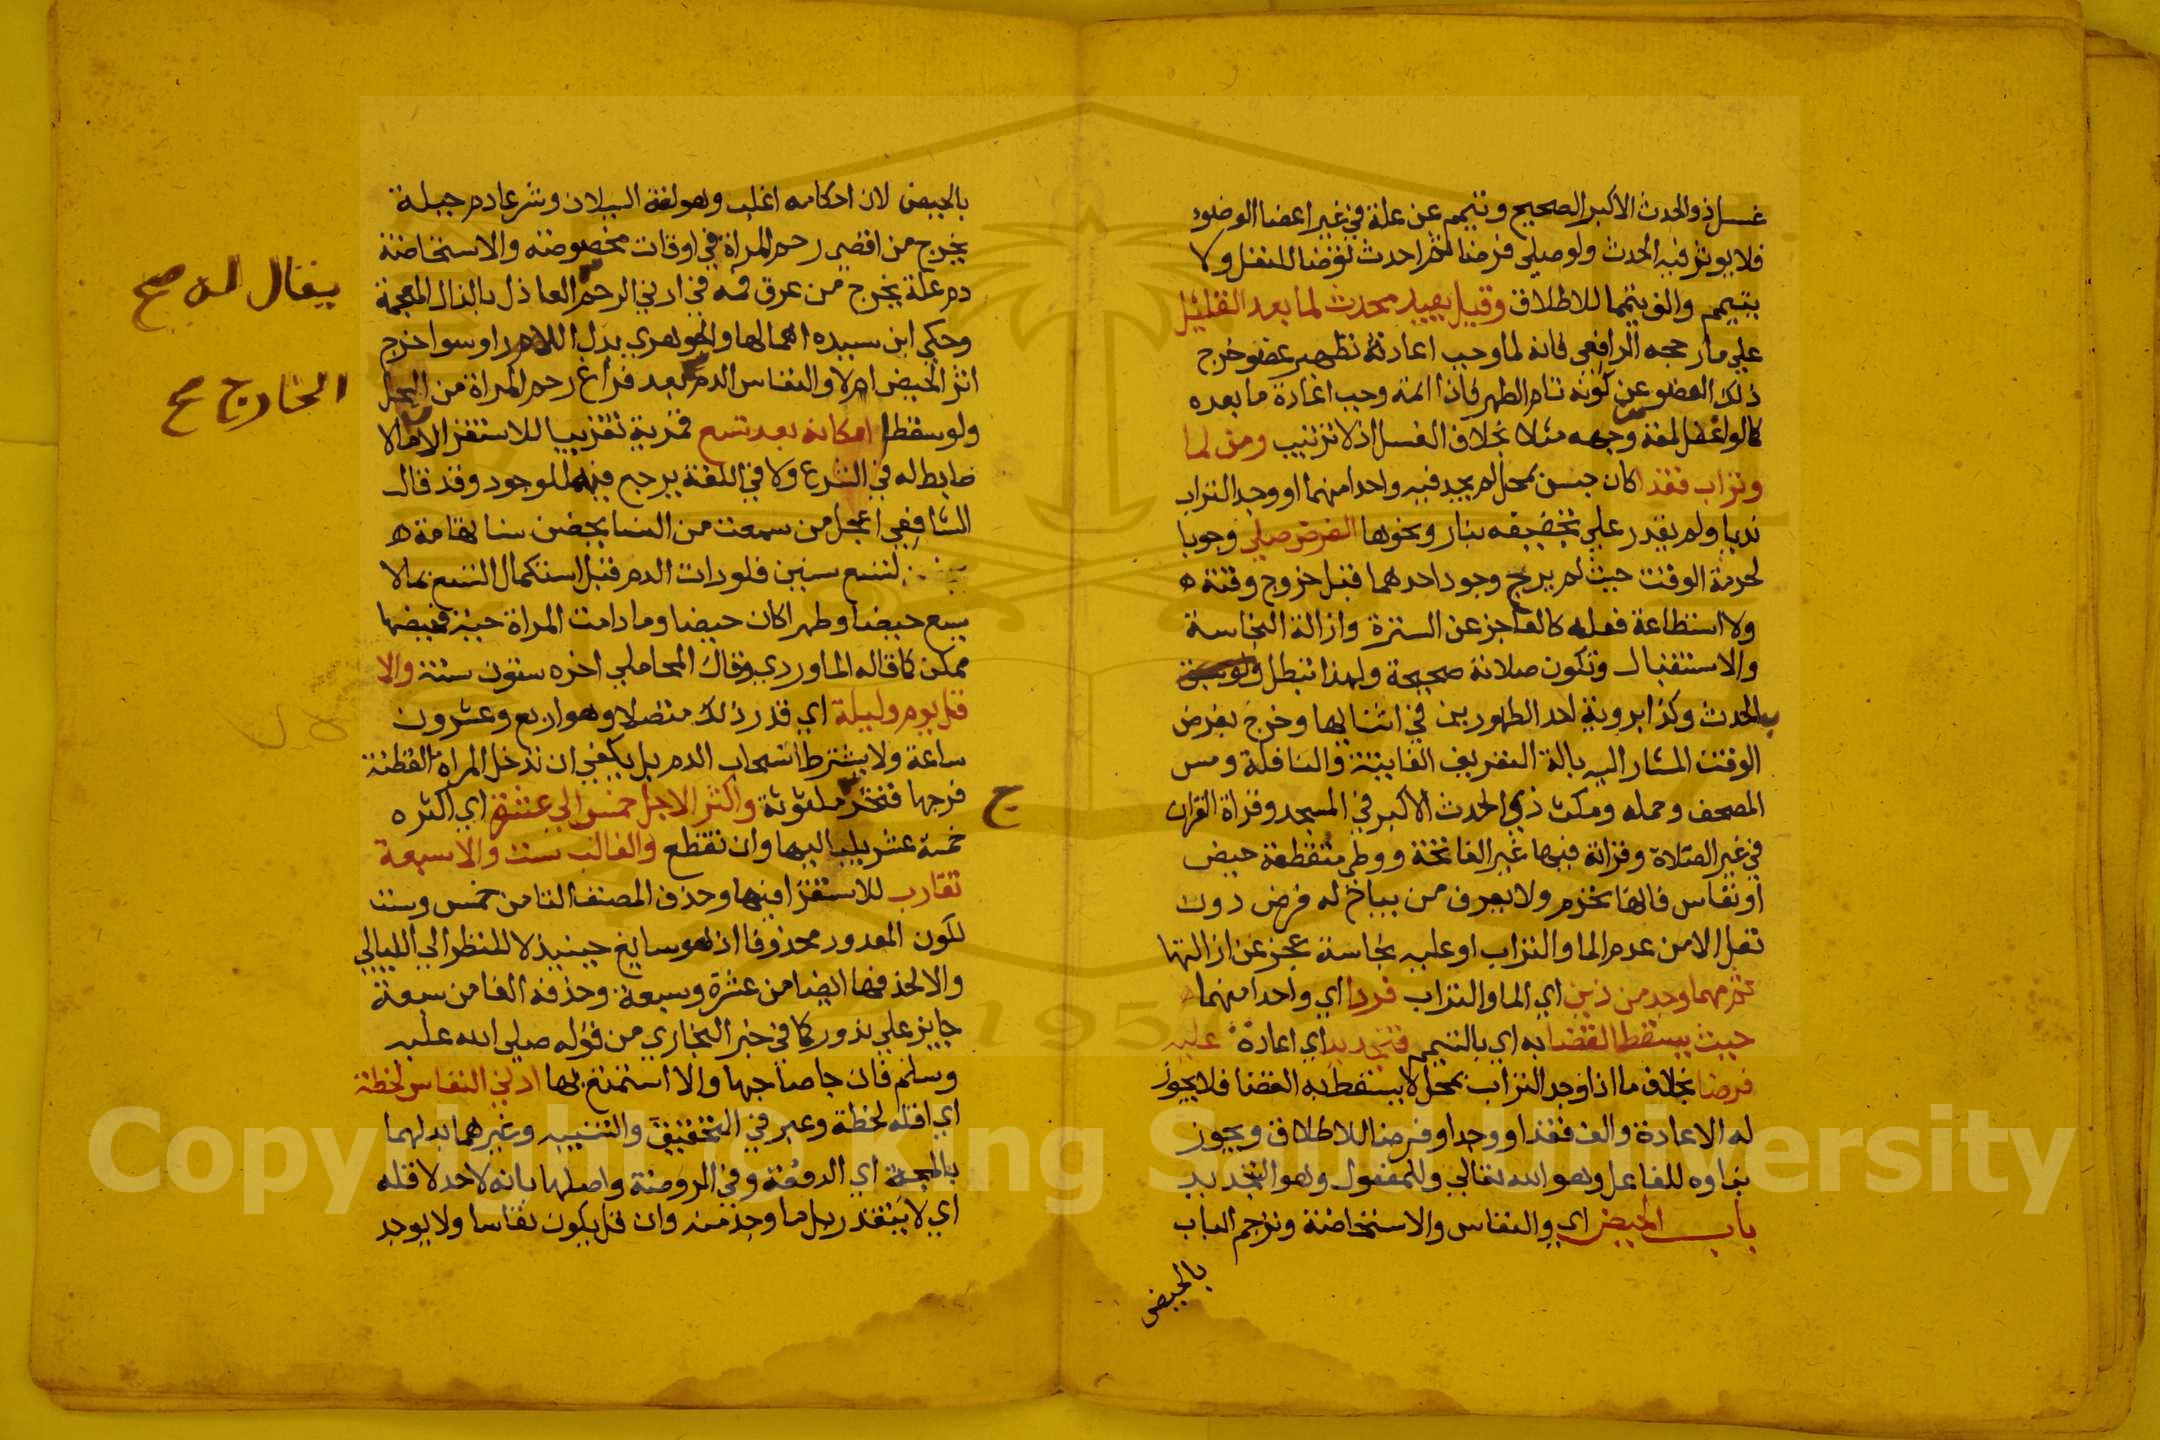 غسل ذو الحدث الاكبر الصحيح وتيمم عن علة في غير اعضا الوضوء
فلا يوثر فيه الحدث ولو صلي فرضا ثم احدث توضا للنفل ولا
يتيمم والف يتيما للاطلاق وقيل يعيد محدث لما بعد الغليل
علي ما رجحه الرافعي فانه لما وجب اعادة تطهير عضو خرج
ذلك العضو عن كونه تام الطهر فاذا اتمه وجب اعادة ما بعده
كما لو اغفل لمعة وجهه مثلا بخلاف الغسل اذ لا ترتيب ومن لما
وتراب فقد اكان حبس بمحل لم يجد فيه واحدا منهما او وجد التراب
نديا ولم يقدر علي تجفيفه بنار ونحوها الفرض صلي وجوبا
لحرمة الوقت حيث لم يرج وجود احدهما قبل خروج وقته
ولا استطاعة فعله كالعاجز عن السترة وازالة النجاسة
والاستقبال وتكون صلاته صحيحة ولهذا تبطل
بالحدث وكذا بروية احد الطهورين في اثنايها وخرج بفرض
الوقت المشار اليه بالة التعريف الفايتة والنافلة ومس
المصحف وحمله ومكث ذي الحدث الاكبر في المسجد وقراة القران
في غير الصلاة وقراة فيها غير الفاتحة ووطي منقطعة حيض
او نفاس فانها تحرم ولا يعرف من يباح له فرض دون
نفل الا من عدم الما والتراب او عليه نجاسة عجز عن ازالتها
ثم مهما وجد من ذين اي الما والتراب فردا اي واحدا منهما
حيث يسقط القضا به اي بالتيمم اي اعادة عليه
فرضا بخلاف ما اذا وجد التراب بمحل لا يسقط به القضا فلا يجوز
له الاعادة والف فقدا ووجدا وفرضا للاطلاق ويجوز
بناوه للفاعل وهو الله تعالي وللمفعول وهو التجديد
باب الحيض اي والنفاس والاستحاضة وترجم الباب
بالحيض
بالحيض لان احكامه اغلب وهو لغة السيلان وشرعا دم جبلة
يخرج من اقصي رحم المراة في اوقات مخصوصه والاستحاضة
دم علة يخرج من عرق فمه في ادني الرحم العاذل بالذال المعجمة
يقال له صح
وحكي ابن سيده اهمالها والجوهري بدل اللام را وسوا خرج
اثر الحيض ام لا والنفاس الدم بعد فراغ رحم المراة من الحمل
الخارج صح
ولو سقطا امكانه بعد تسع قمرية تقريبا للاستقرا لان ما لا
ضابط له في الشرع ولا في اللغة يرجع فيه للوجود وقد قال
الشافعي اعجل من سمعت من النسا يحضن نسا تهامة
لتسع سنين فلو رات الدم قبل استكمال التسع بما لا
يسع حيضا وطهرا كان حيضا وما دامت المراة حية فحيضها
ممكن كما قاله الماوردي وقال المحاملي اخره ستون سنة والا
قل يوم وليلة اي قدر ذلك متصلا وهو اربع وعشرون
ساعة ولا يشترط انسحاب الدم بل يكفي ان تدخل المراة القطنة
فرجها فتخرج ملوثة واكثر الاجل خمس الي عشرة اي اكثره
ح
خمسة عشر بلياليها وان تقطع والغالب ست والا سبعة
تقارب للاستقرا فيها وحذف المصنف التا من خمس وست
لكون المعدود محذوفا اذ هو سايغ حينيذ لا للنظر الي الليالي
والا لحذفها ايضا من عشرة وسبعة وحذف الفا من سبعة
جايز علي ندور كما في خبر البخاري من قوله صلي الله عليه
وسلم فان جا صاحبها والا استمتع بها ادني النفاس لحظة
اي اقله لحظة وعبر في التحقيق والتنبيه وغيرهما بدلهما
بالمجة اي الدفعة وفي الروضة واصلها بانه لا حد لاقله
اي لا يتقدر بل ما وجد منه وان قل يكون نفاسا ولا يوجد